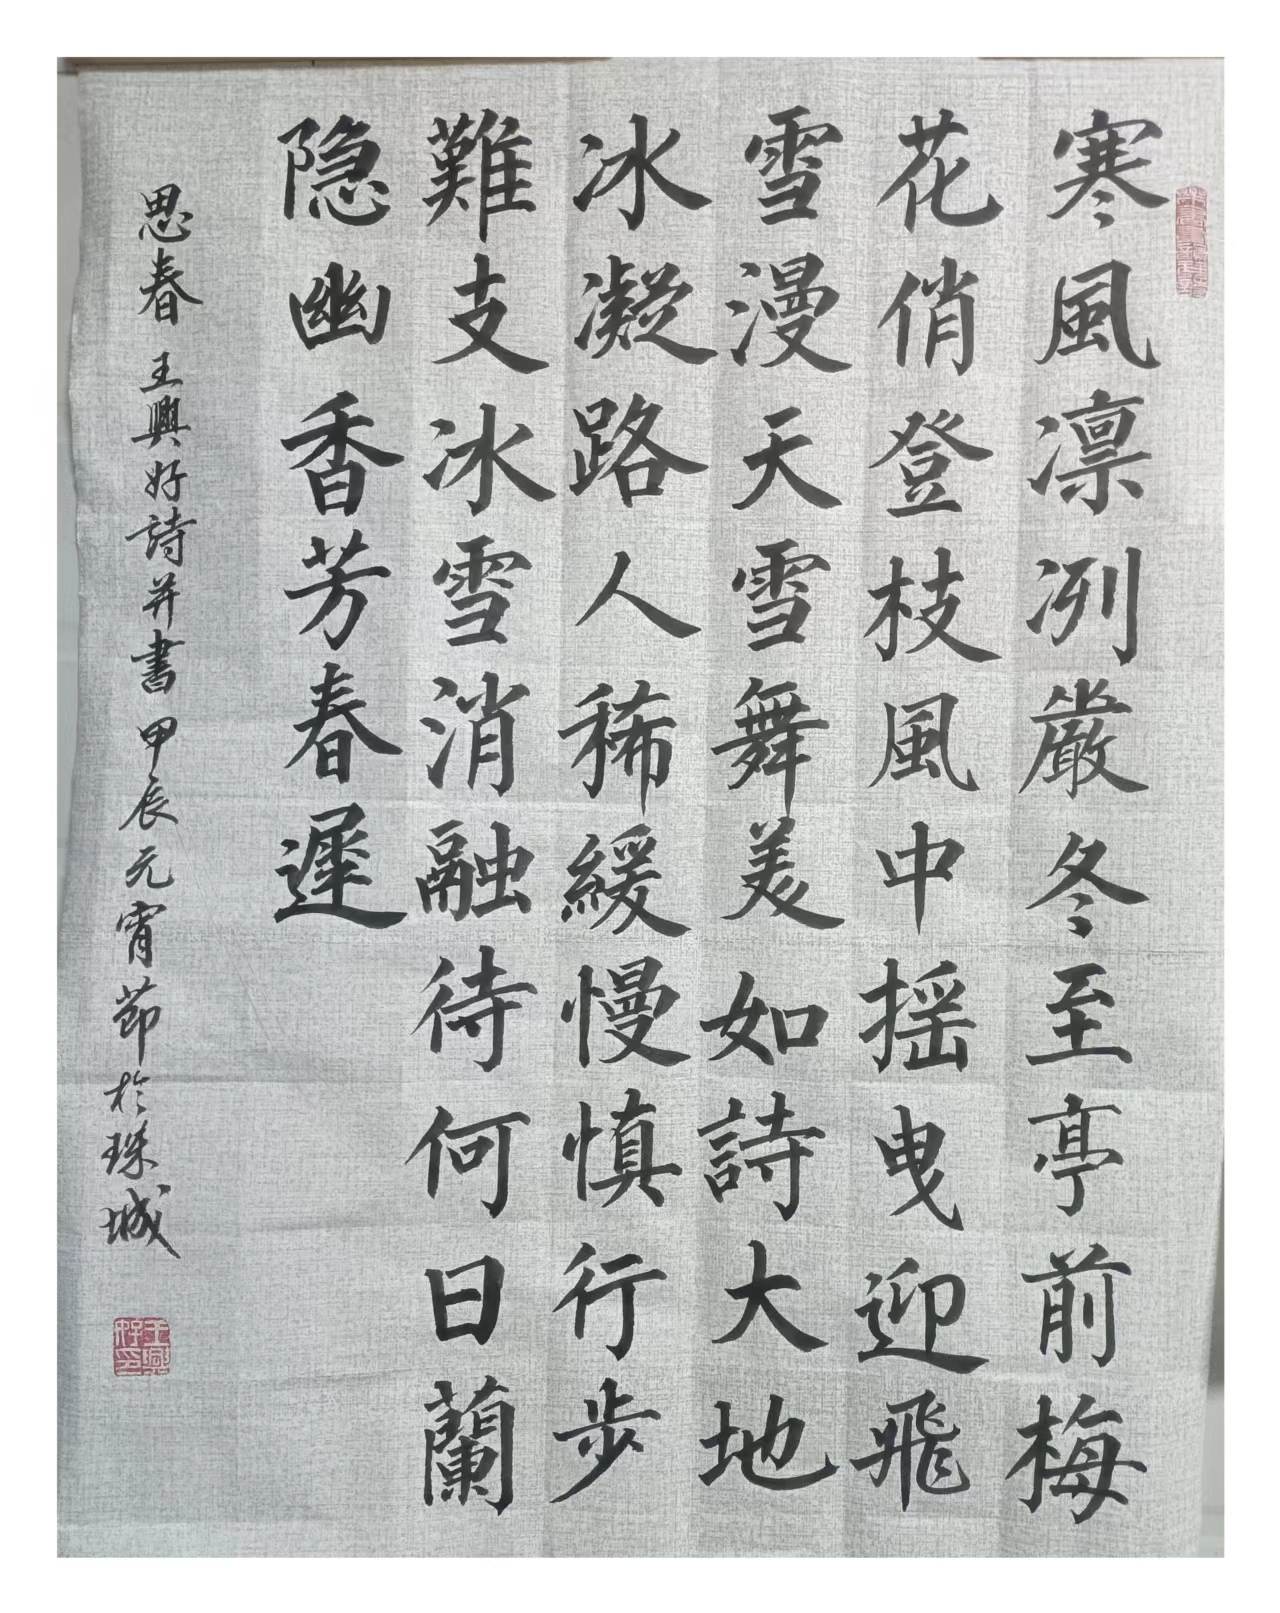 寒風凛冽嚴冬至亭前梅
花俏登枝風中摇曳迎飛
雪漫天雪舞美如詩大地
冰凝路人稀緩慢慎行步
難支冰雪消融待何日蘭
隐幽香芳春遲
思春 王興好詩并書甲辰元宵節於珠城
王興好印